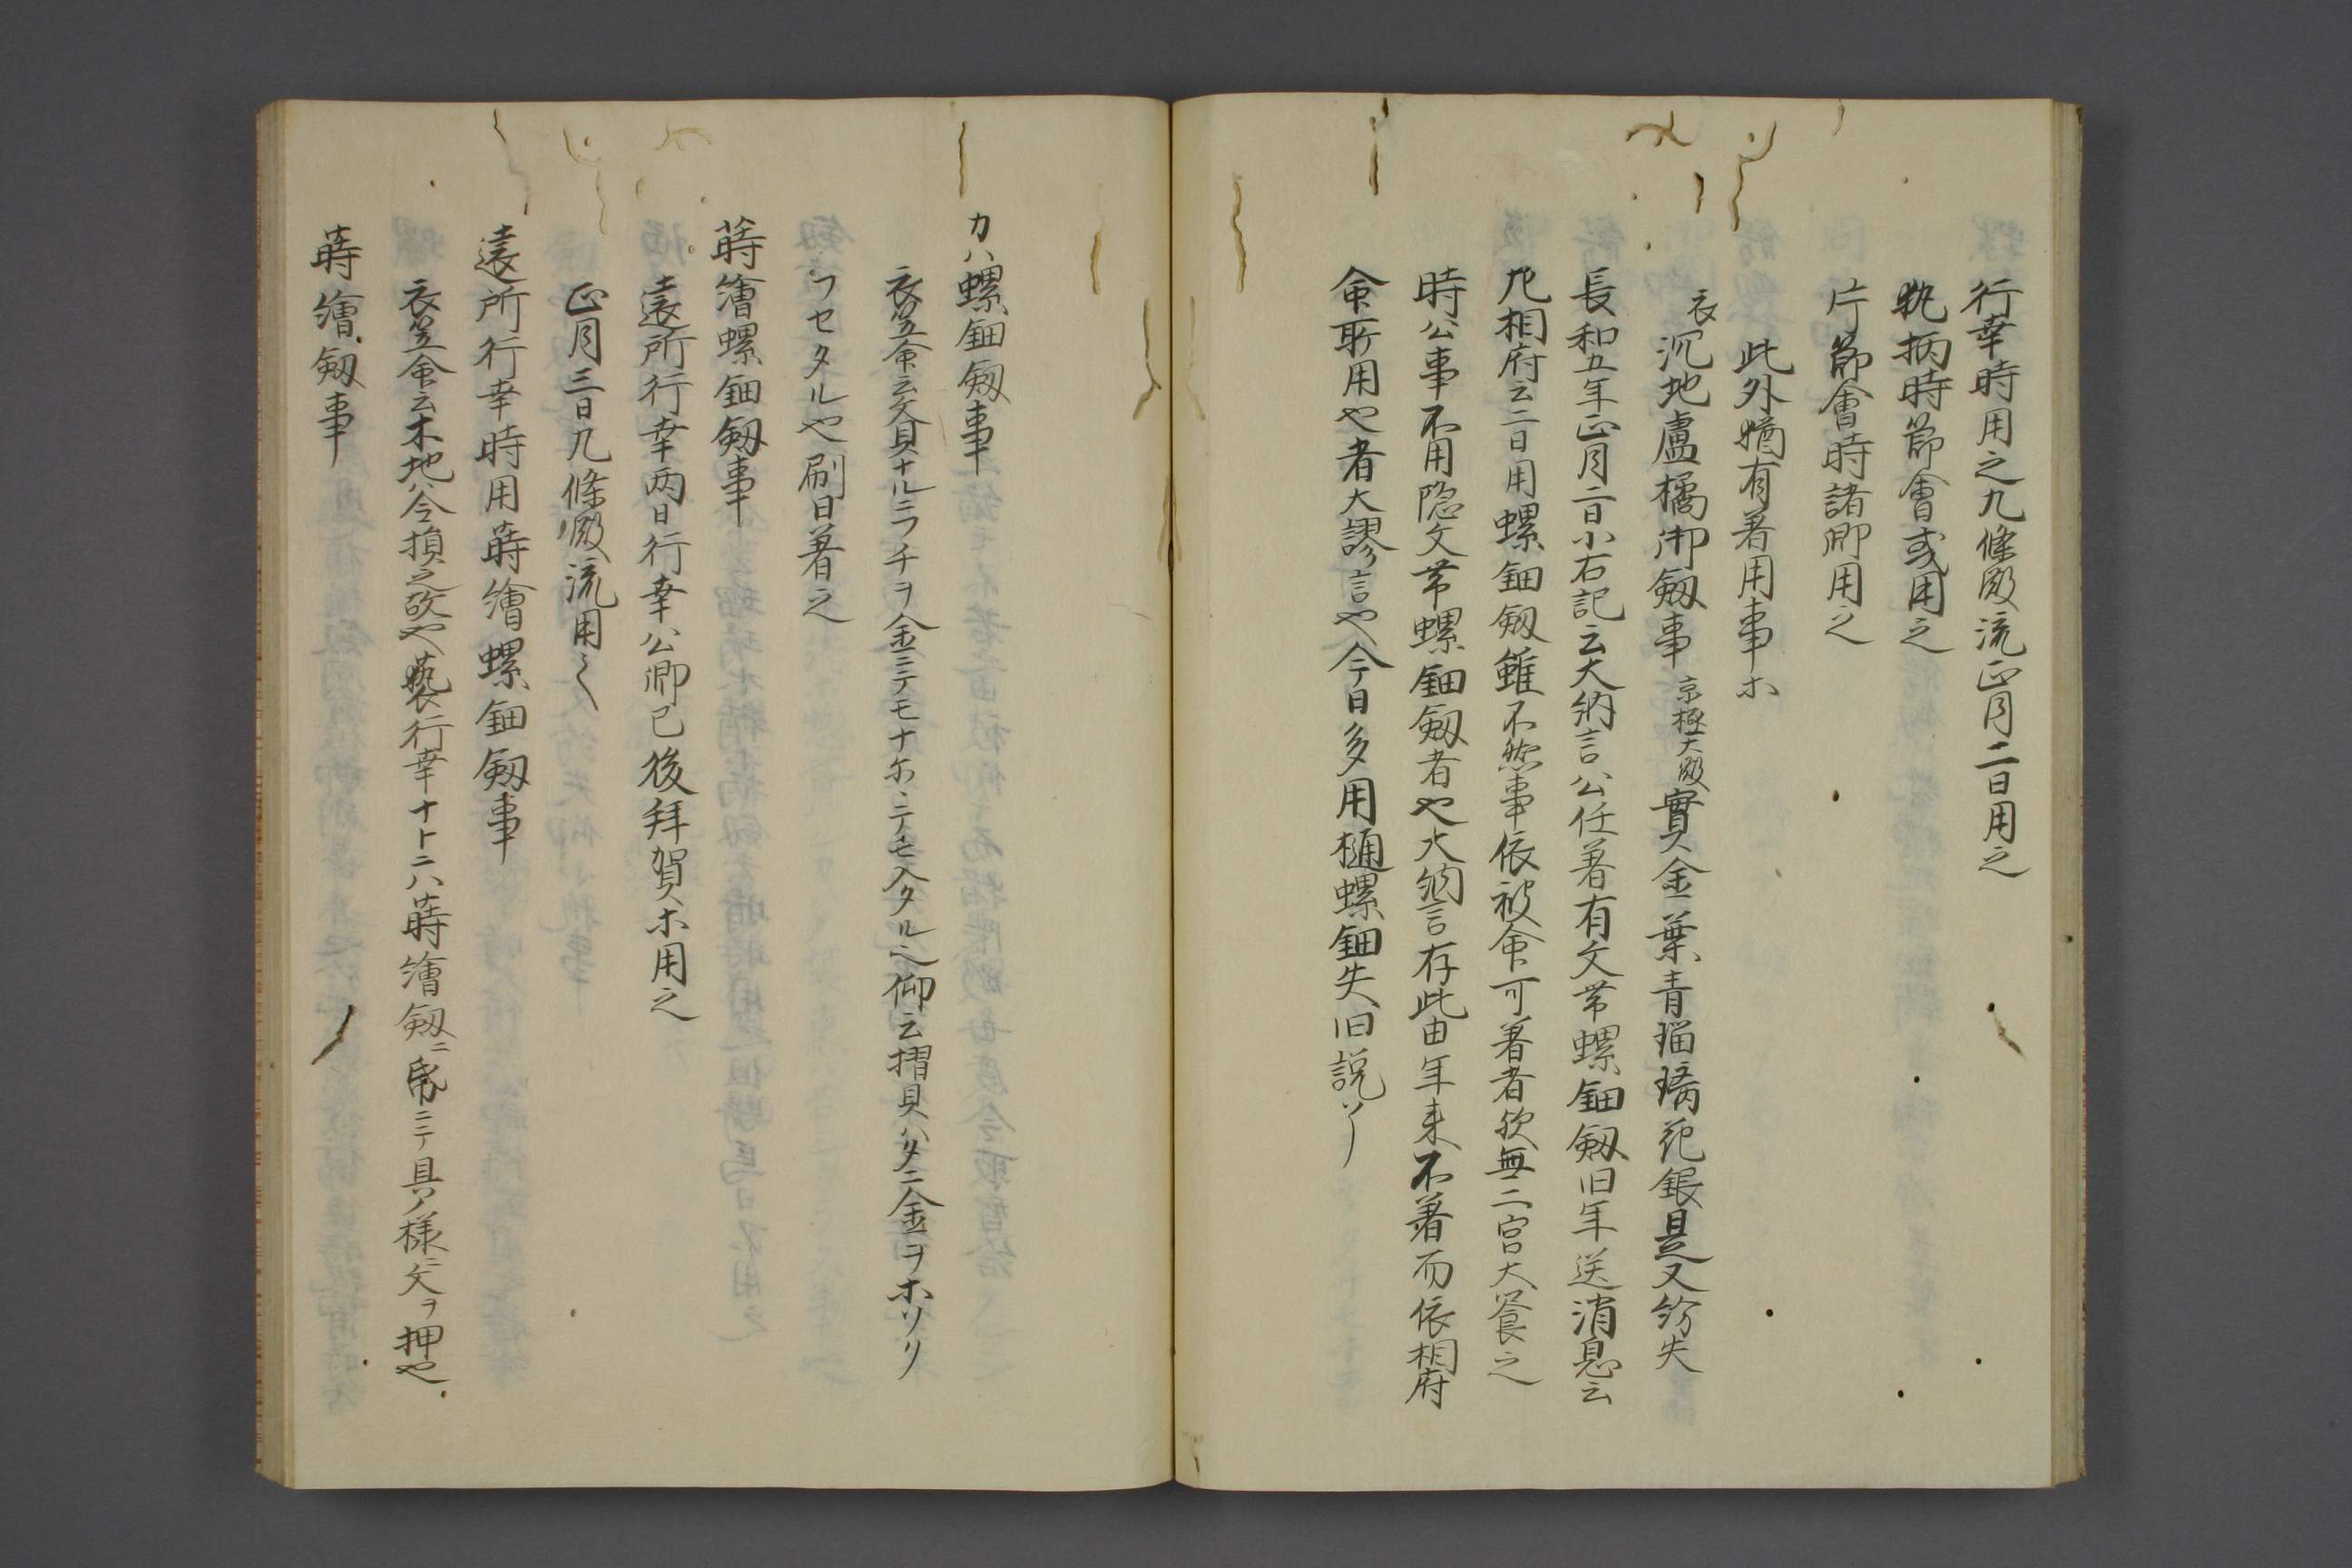 行幸時用之九條殿流正月二日用之
執柄時節會或用之
片節會時諸卿用之
此外猶有著用事ホ
衣
沉地盧橘御釼事 京極大殿 實金葉青瑠璃花銀是又紛失
長和五年正月二日小右記云大納言公任著有文帯螺鈿釼旧年送消息云
九相府云二日用螺鈿釼雖不然事依被命可著者欤無二宮大饗之
時公事不用隠文帯螺鈿釼者也大納言存此由年来不著而依相府
命所用也者大謬言也今日多用樋螺鈿失旧説
カハ螺鈿釼事
衣笠命云文貝ナルニフチヲ金ニテモナホニテモ入タル也仰云摺貝ハタニ金ヲホソリ
フセタル也刷日著之
蒔繪螺鈿釼事
遠所行幸両日行幸公卿已後拜賀ホ用之
正月三日九條殿流用
遠所行幸時用蒔繪螺鈿釼事
衣笠命云木地ハ令損之故也褻行幸ナトニハ蒔繪釼ニ帋ニテ具ノ様ニ文ヲ押也
蒔繪釼事